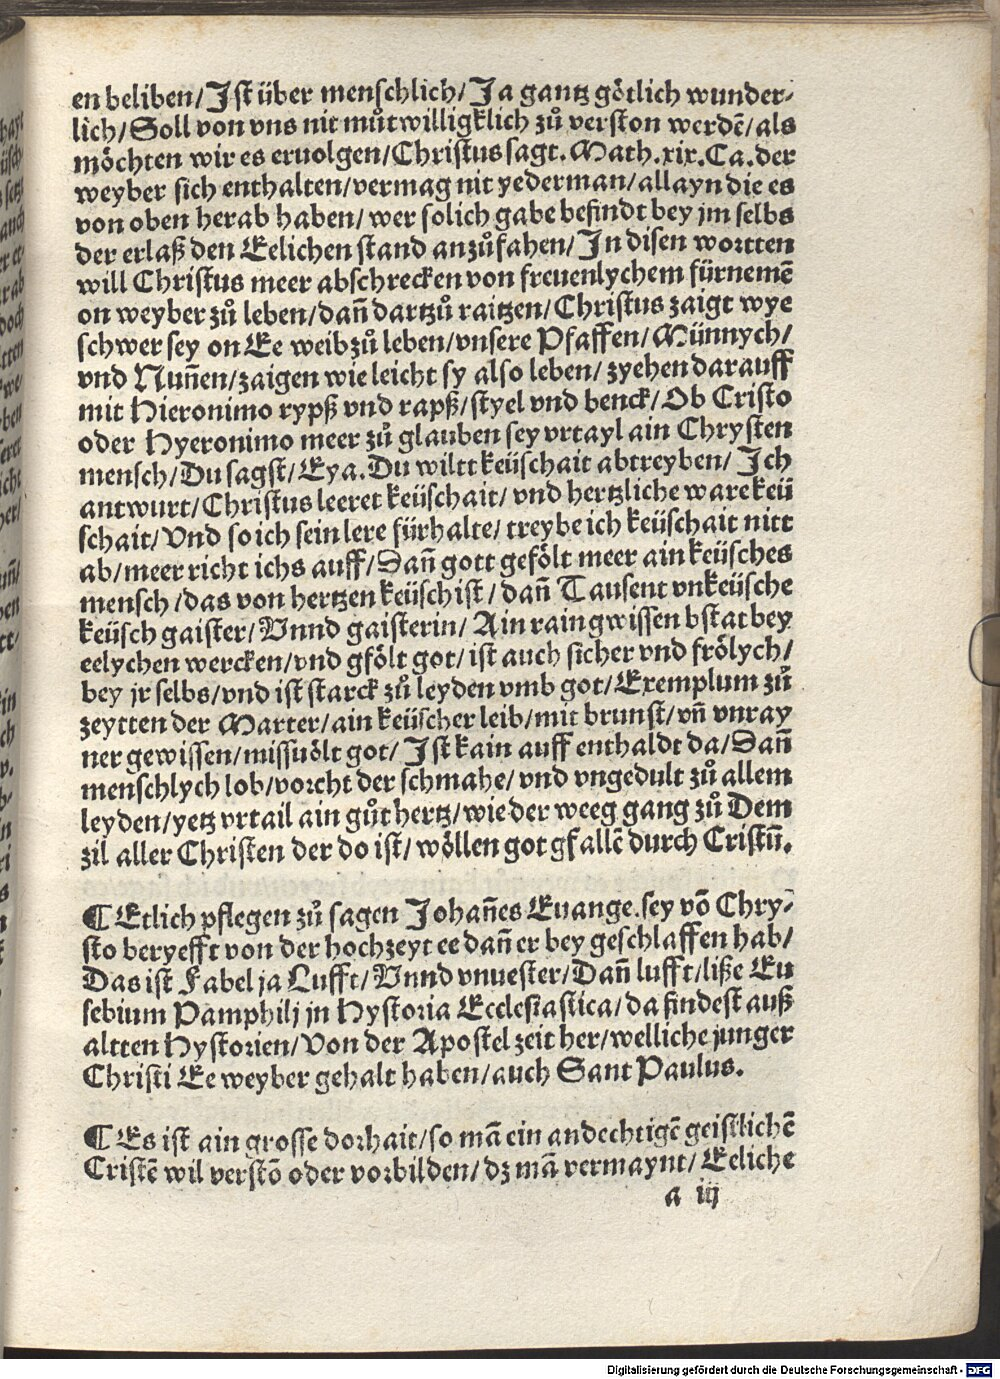 en beliben/ Ist über menschlich/ Ja gantz götlich wunder-
lich/ Soll von vns nit můtwilligklich zů verston werdē/ als
möchten wir es eruolgen/ Christus sagt. Math. xix. Ca. der
weyber sich enthalten/ vermag nit yederman/ allayn die es
von oben herab haben/ wer solich gabe befindt bey jm selbs
der erlaß den Eelichen stand anzůfahen/ In disen wortten
will Christus meer abschrecken von freuenlychem fürnemē
on weyber zů leben/ dañ dartzů raitzen/ Christus zaigt wye
schwer sey on Ee weib zů leben/ vnsere Pfaffen/ Münnych/
vnd Nuñen/ zaigen wie leicht sy also leben/ zyehen darauff
mit Hieronimo rypß vnd rapß/ styel vnd benck/ Ob Cristo
oder Hyeronimo meer zů glauben sey vrtayl ain Chrysten
mensch/ Du sagst/ Eya. Du wiltt keüschait abtreyben/ Ich
antwurt/ Christus leeret keüschait/ vnd hertzliche ware keü
schait/ Vnd so ich sein lere fürhalte/ treybe ich keüschait nitt
ab/ meer richt ichs auff/ Dañ gott gefölt meer ain keüsches
mensch/ das von hertzen keüsch ist/ dañ Tausent vnkeüsche
keüsch gaister/ Vnnd gaisterin/ Ain rain gwissen bstat bey
eelychen wercken/ vnd gfölt got/ ist auch sicher vnd frölych/
bey jr selbs/ vnd ist starck zů leyden vmb got/ Exemplum zů
zeytten der Marter/ ain keüscher leib/ mit brunst/ vñ vnray
ner gewissen/ missuölt got/ Ist kain auff enthaldt da/ Dañ
menschlych lob/ vorcht der schmahe/ vnd vngedult zů allem
leyden/ yetz vrtail ain gůt hertz/ wie der weeg gang zů Dem
zil aller Christen der do ist/ wöllen got gfallē durch Cristū.
¶ Etlich pflegen zů sagen Johañes Euange. sey vō Chry-
sto beryefft von der hochzeyt ee dañ er bey geschlaffen hab/
Das ist Fabel ja Lufft/ Vnnd vnuester/ Dañ lufft/ liße Eu
sebium Pamphilj jn Hystoria Ecclesiastica/ da findest auß
altten Hystorien/ Von der Apostel zeit her/ welliche junger
Christi Ee weyber gehalt haben/ auch Sant Paulus.
¶ Es ist ain grosse dorhait/ so mā ein andechtigē geistlichē
Cristē wil verstō oder vorbilden/ dz mā vermaynt/ Eeliche
a iij
Digitalisierung gefördert durch die Deutsche Forschungsgemeinschaft - DFG